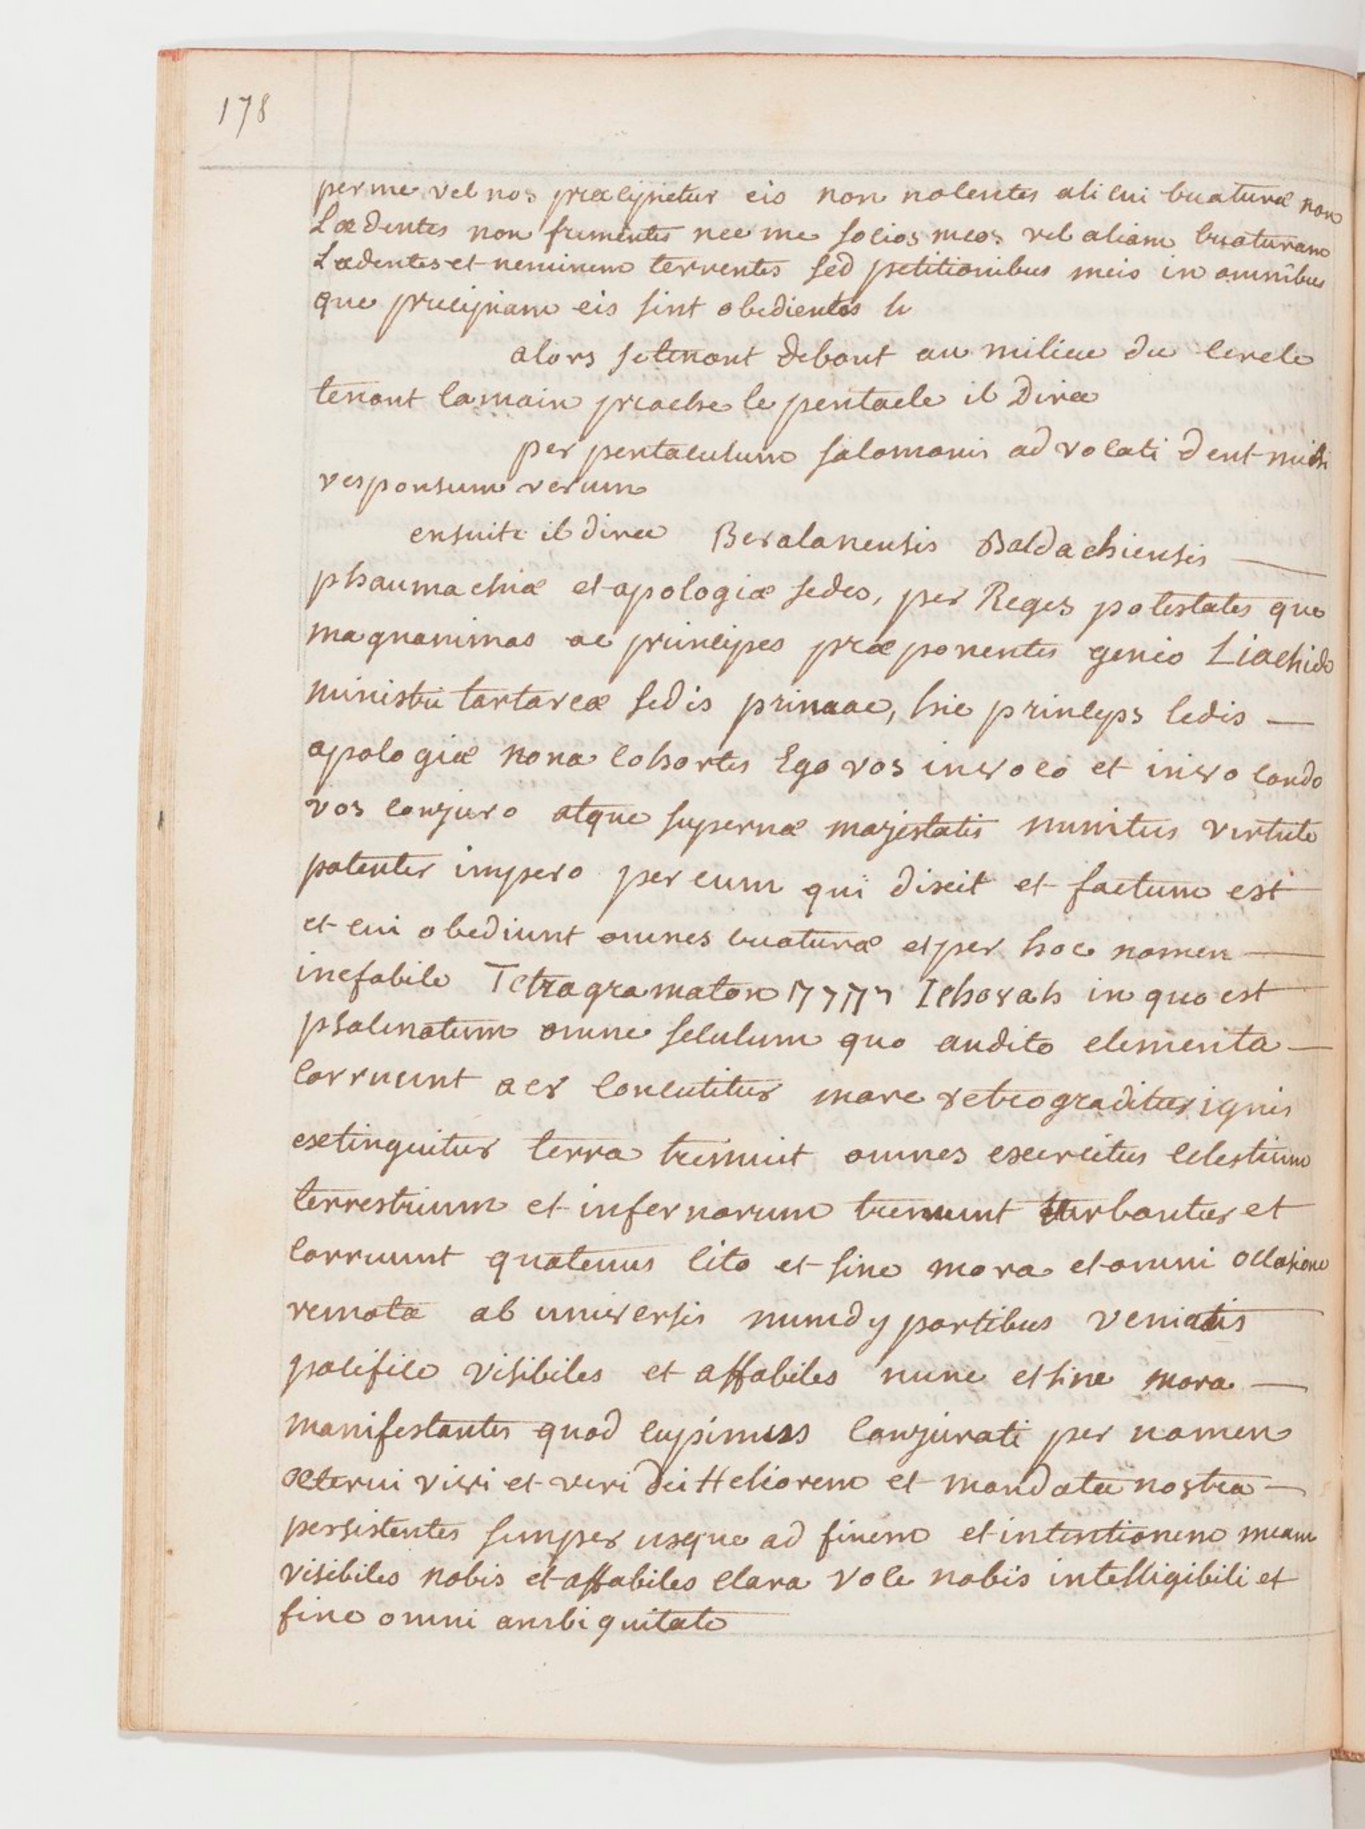 178
per me vel nos præcipietur eis non nolentes alicui creaturæ non
Lædentes non frementes nec me socios meos vel aliam creaturam
Lædentes et neminem terrentes sed petitionibus meis in omnibus
que precipiam eis sint obedientes
alors se tenant debout au milieu du cercle
tenant la main proche le pentacle il Dira
per pentaculum salomonis advocati dent mihi
responsum verum
ensuite il dira Beralanensis Baldachiensis —
phaumachiæ et apologiæ sedes, per Reges potestates que
magnanimas ac principes præponentes genio Liachido
ministri tartareæ sedis primac, hic princeps sedis —
apologiæ nona cohortes Ego vos invoco et invocando
vos conjuro atque supernæ majestatis munitus virtute
potenter impero per eum qui dixit et factum est
et cui obediunt omnes creaturæ et per hoc nomen —
inefabile Tetragramaton יהוה Iehovah in quo est
psalmatum omne seculum quo audito elementa —
corruunt aer concutitur mare retrograditur ignis
extinguitur terra tremuit omnes exercitus celestium
terrestrium et infernorum tremunt turbantur et
corruunt quatenus cito et sine mora et omni occasione
remota ab universis mundy partibus veniatis
pacifice visibiles et affabiles nunc et sine mora —
manifestantes quod cupimus conjurati per nomen
æterni vivi et veri dei Heliorem et mandata nostra —
persistentes semper usque ad finem et intentionem meam
visibiles nobis et affabiles clara voce nobis intelligibili et
sine omni ambiguitate